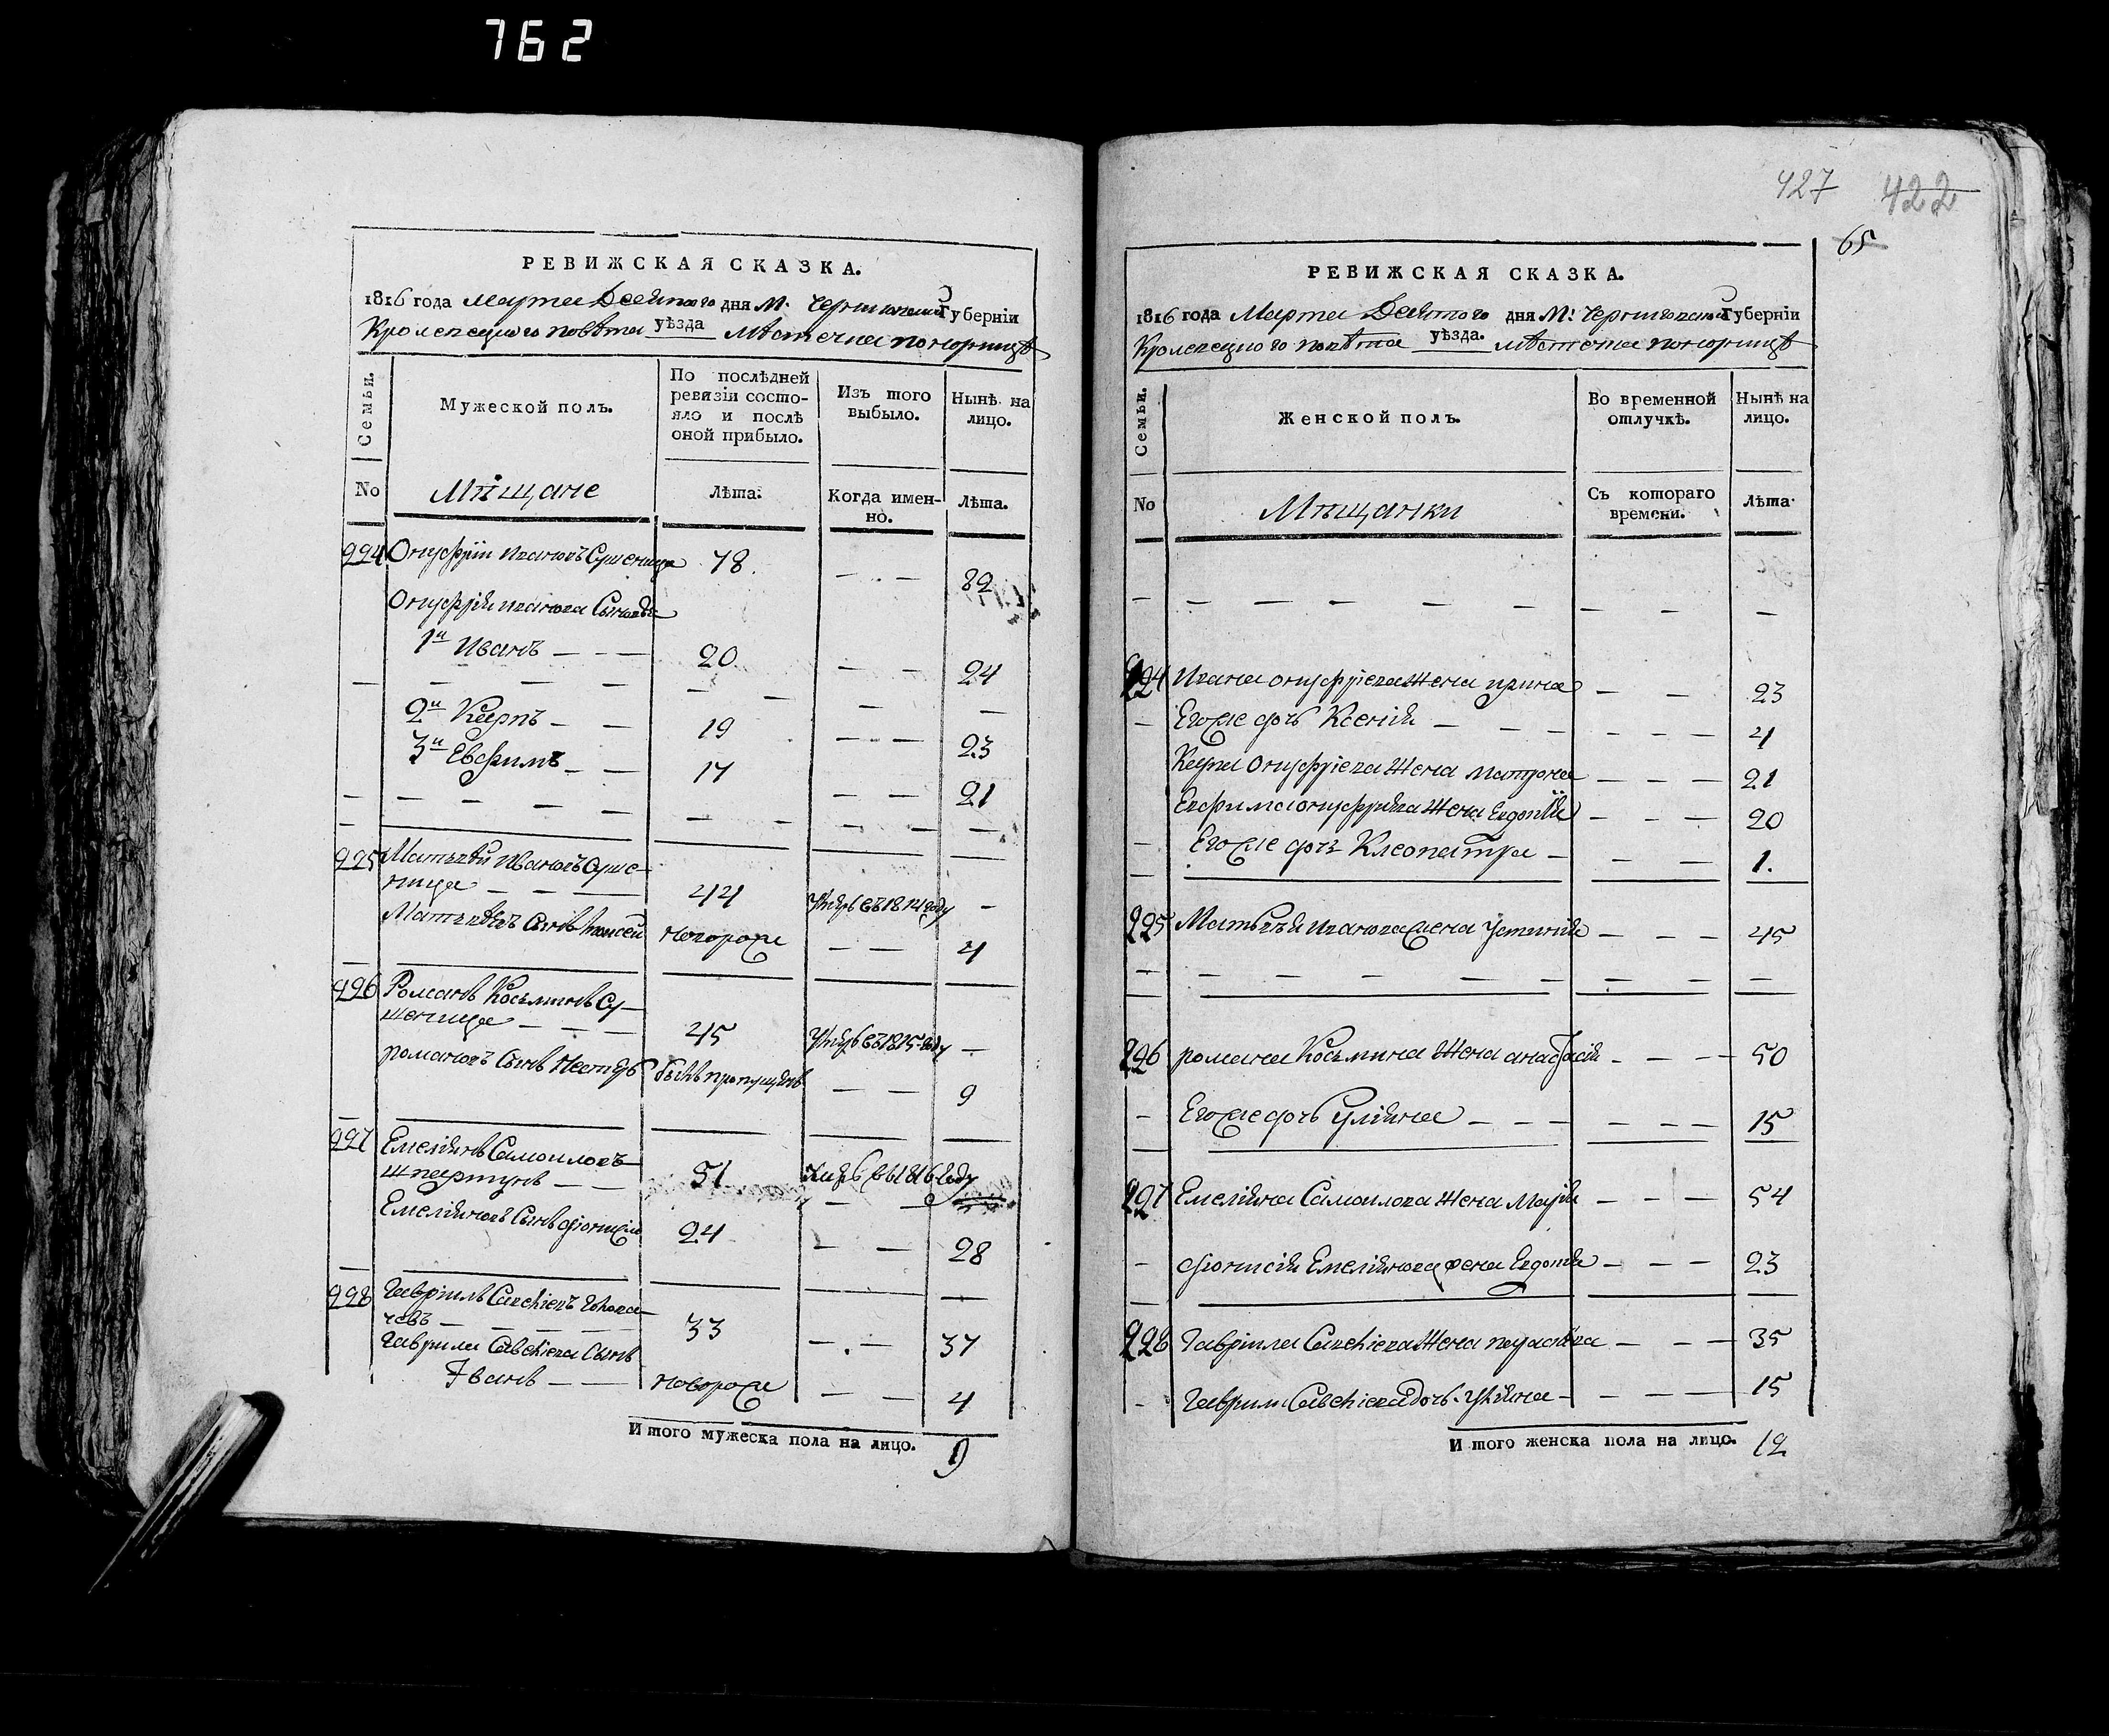 762
РЕВИЖСКАЯ СКАЗКА.
1816 года Марта Десятого дня М. Черниговской Губернiи
Кролевецкого повѣта уѣзда Мѣстечка Понорницѣ
Семьи.
Мужеской полъ.
По послѣдней ревизiи состояло и послѣ оной прибыло.
Изъ того выбыло.
Нынѣ на лицо.
No
Мѣщане
Лѣта.
Когда именно.
Лѣта.
224 Онуфрiй Ивановъ Сушеница 78. — — 82
Онуфрiя Иванова Сыновья
1й Иванъ — — 20 — — 24
2й Карпъ — — 19 — — 23
3й Евфимъ — — 17 — — 21
225 Матвѣй Ивановъ Суше-
ница — — — 44 Умеръ въ 1814 году —
Матвѣевъ Сынъ новорож — — 4
226 Романъ Косьминъ Су-
шеница — — — 45 Умеръ въ 1815 году —
Романовъ Сынъ Нестеръ былъ пропущенъ — — 9
227 Емелiянъ Самойловъ
51 Умеръ въ 1816 году
Емелiяновъ Сынъ Дiонисiй 24 — — 28
228 Гаврiилъ Савёiевъ
33 — — 37
Гаврила Савёiева Сынъ
Iванъ — — новорож — — 4
Итого мужеска пола на лицо. 9
427 422
65
РЕВИЖСКАЯ СКАЗКА.
1816 года Марта Десятого дня М: Черниговской Губернiи
Кролевецкого повѣта уѣзда. Мѣстечка Понорницѣ
Семьи.
Женской полъ.
Во временной отлучкѣ.
Нынѣ на лицо.
No
Мѣщанки
Съ котораго времени.
Лѣта
224 Ивана Онуфрiева Жена Ирина — — 23
— Егоже дочь Ксенiя — — — 4
Карпа Онуфрiева Жена Матрона — — — 21
Евфима Онуфрiева Жена Евдокiя — — — 20
— Егоже дочь Клеопатра — — — 1.
225 Матвѣя Иванова жена Устинiя — — — 45
226 Романа Косьмина Жена Анастасiя — — — 50
— Егоже дочь Улiяна — — — 15
227 Емелiяна Самойлова Жена Марiя — — — 54
— Дiонисiя Емелiянова жена Евдокiя — — — 23
228 Гаврiила Савёiева Жена — — — 35
- Гаврила Савёiева дочь Улiяна — — — 15
Итого женска пола на лицо. 12